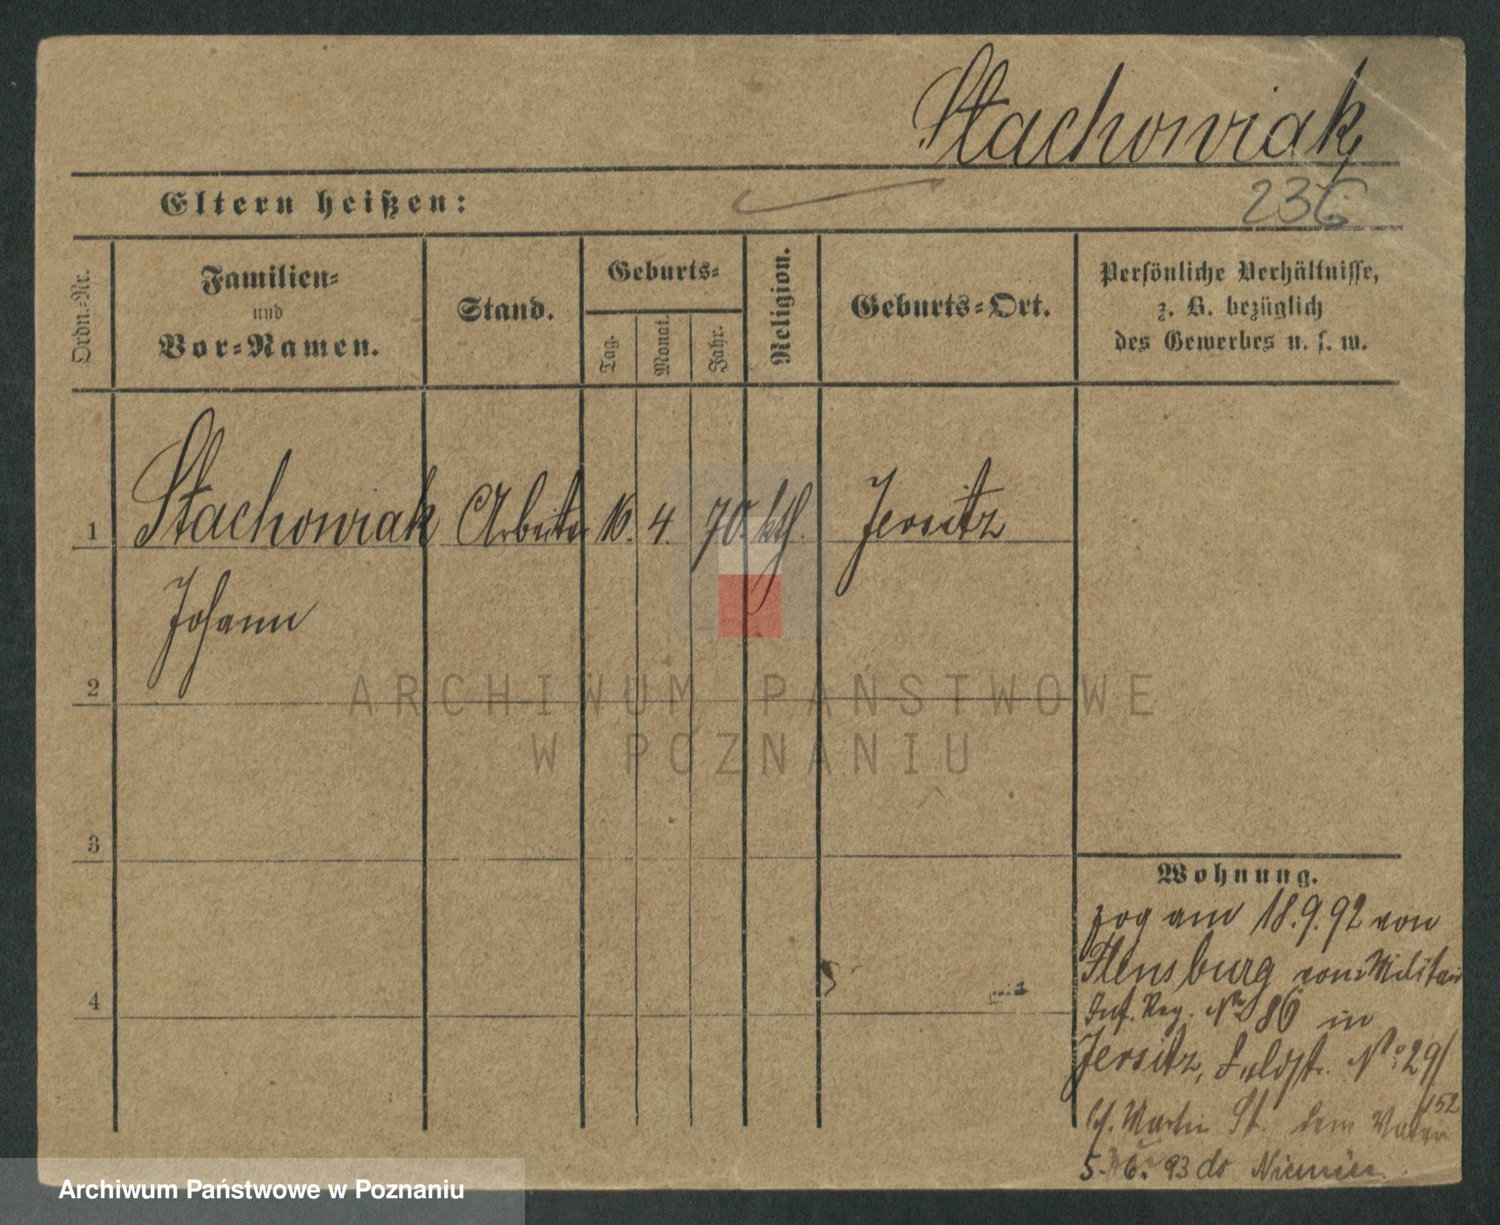 Stachowiak
Eltern heißen:
236
Ordn.-Nr.
Familien-
und
Vor-Namen.
Stand.
Geburts-
Tag.
Monat.
Jahr.
Religion.
Geburts-Ort.
Persönliche Verhältnisse,
z. B. bezüglich
des Gewerbes u. s. w.
1 Stachowiak Arbeiter 16. 4. 70. kth. Jersitz
Johann
2
3
4
Wohnung.
zog am 18.9.92 von
Flensburg vom Militair
Inf. Reg. No 86 in
Jersitz, Feldstr. No 29/
152
b/. Martin St. dem Vater
5. 6. 93 do Niemiec.
ARCHIWUM PAŃSTWOWE
W POZNANIU
Archiwum Państwowe w Poznaniu